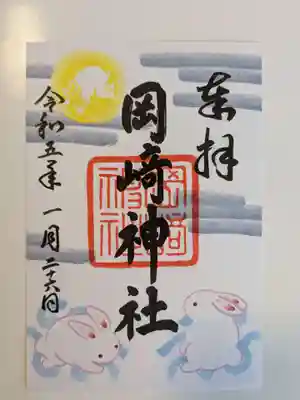 奉拝
岡崎神社
令和五年一月二十六日